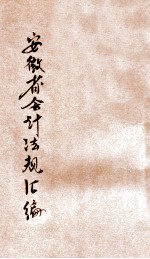 安徽省会计法规汇编